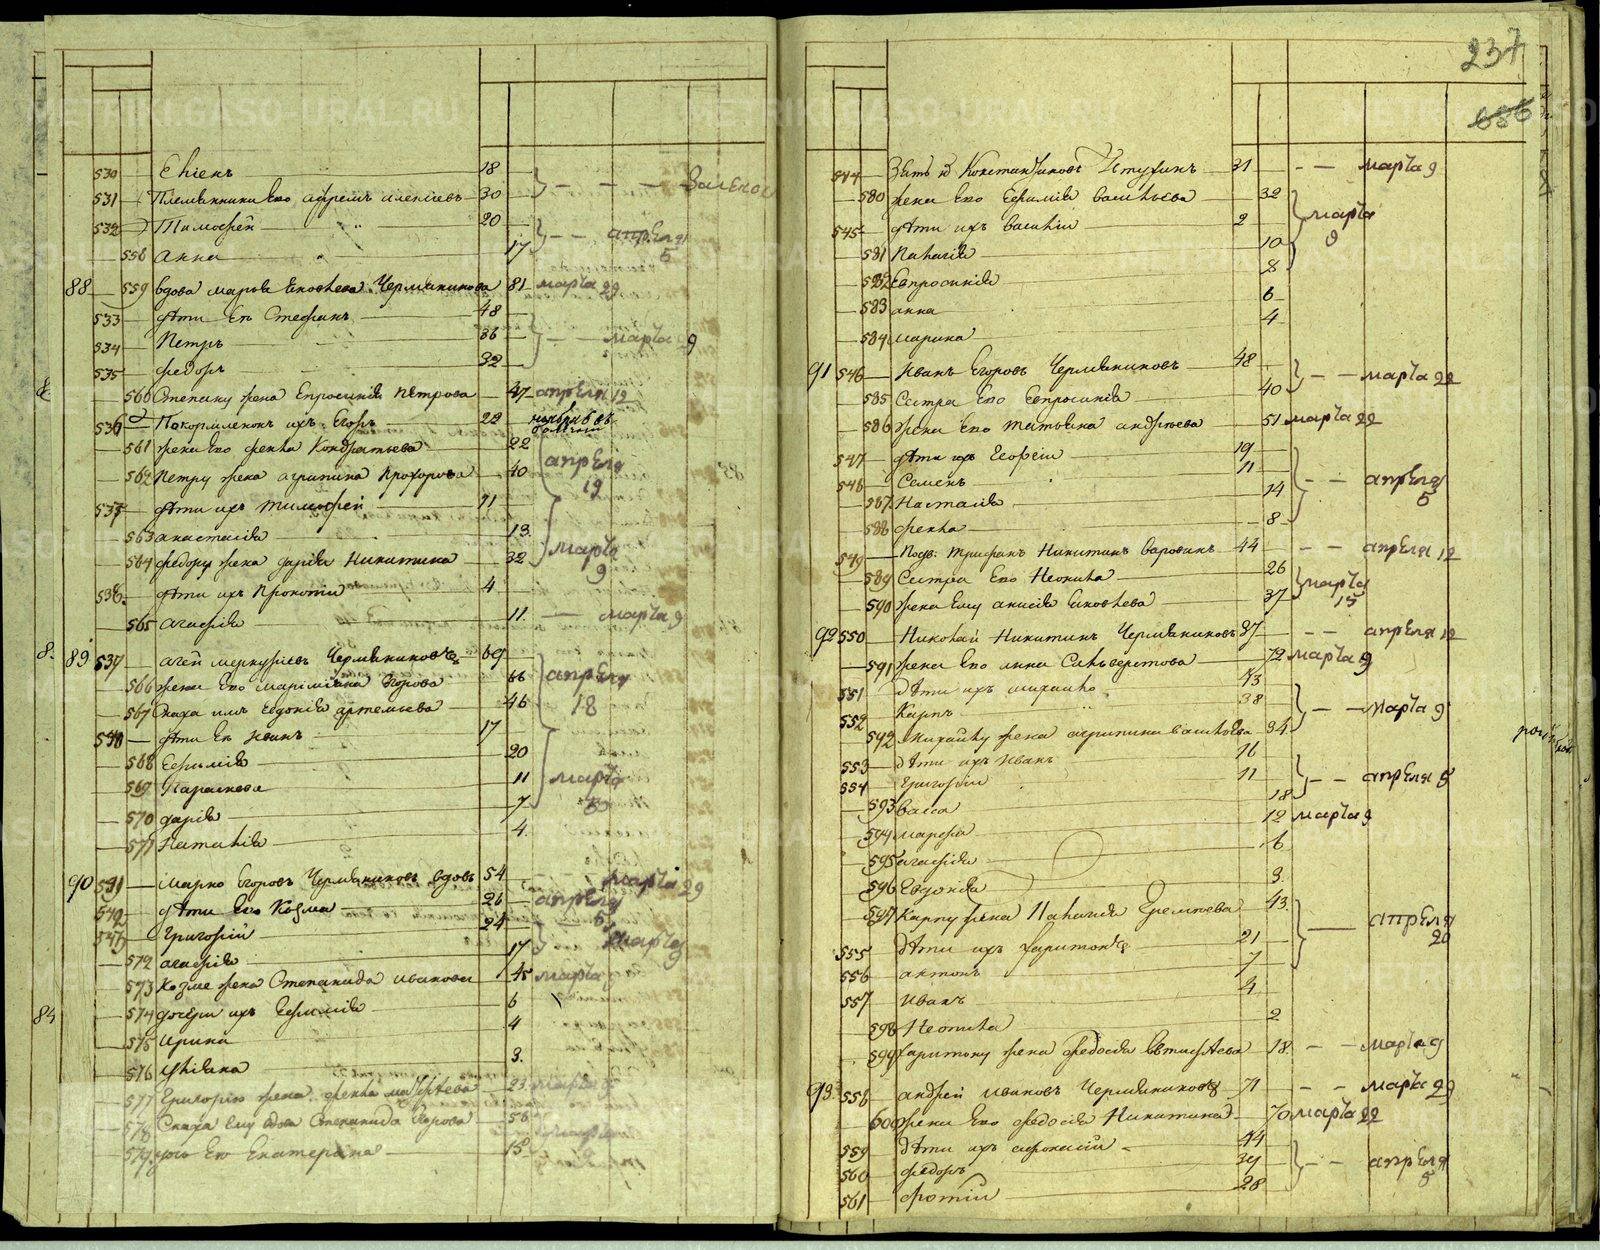 530 18
531 Племянники Его 30
532 Тимофей 20 апреля 5
558 Анна 17
88 559 вдова марья Яковлева Чермянинова 81 марта 29
533 дѣти Ея Стефанъ 48
534 Петръ 36 марта 9
535 федоръ 32
560 Степану жена Епросинія Петрова 47 апреля 12
536 Покормленокъ ихъ Егоръ 22
561 жена Его фекла Кондратьева 22
562 Петру жена агрипина Прохорова 40 апреля 19
537 дѣти ихъ тимофей 11
563 анастасія 13
564 федору жена дарія Никитина 32 марта 9
538 дѣти ихъ Прокопій 4
565 агафія 11 марта 9
89 539 меркурьевъ Чермяниновъ 69
566 жена Его Егорова 66 апреля 18
567 Сноха имъ Евдокія артемьева 46
540 дѣти Ея Иванъ 17
568 Ефимія 20
569 Параскева 11 марта
570 дарія 7
571 Наталія 4
90 541 Марко Егоровъ Чермяниновъ вдовъ 54 марта 29
542 дѣти Его Козма 26 апреля 5
543 Григорій 24 марта 9
572 агафія 17
573 Козме жена Степанида иванова 45 марта
574 дочери ихъ Ефимія 6
575 Ирина 4
576 Уліяна 3
577 Григорію жена фекла матфѣева 23 марта 9
578 Сноха Ему вдова Степанида Егорова 58
579 дочь Ея Екатерина 15
237
686
544 Зять 31 марта 9
580 жена Его Ефимія Васильева 32
545 дѣти ихъ Василій 2 марта 9
581 Палагія 10
582 Епросинія 8
583 анна 6
584 марина 4
91 546 Иванъ Егоровъ Чермяниновъ 48 марта 22
585 Сестра Его Евпросинія 40
586 жена Его татьяна андреева 51 марта 22
547 дѣти ихъ Георгій 19
548 Семенъ 11 апреля 5
587 Настасія 14
588 фекла 8
549 Трифанъ Никитинъ 44 апреля 12
589 Сестра Его Неонила 26 марта 15
590 жена Ему анисія Яковлева 37
92 550 Николай Никитинъ Чермяниновъ 87 апреля 12
591 жена Его анна 72 марта 9
551 дѣти ихъ михайло 43
552 Карпъ 38 марта 9
592 михайлу жена агрипина Васильева 34
553 дѣти ихъ Иванъ 16
554 Григорій 11 апреля 5
593 Васса 18
594 марфа 12 марта 9
595 агафія 6
596 Евдокія 3
597 Карпу жена Палагія Еремеева 43 апреля 20
555 дѣти ихъ Харитонъ 21
556 антонъ 7
557 Иванъ 4
598 Неонила 2
599 Харитону жена федосія 18 марта 9
93 558 андрей Ивановъ Чермяниновъ 71 марта 29
600 жена Его федосія Никитина 70 марта 22
559 дѣти ихъ афонасій 44
560 федоръ 39 апреля 5
561 фотій 28